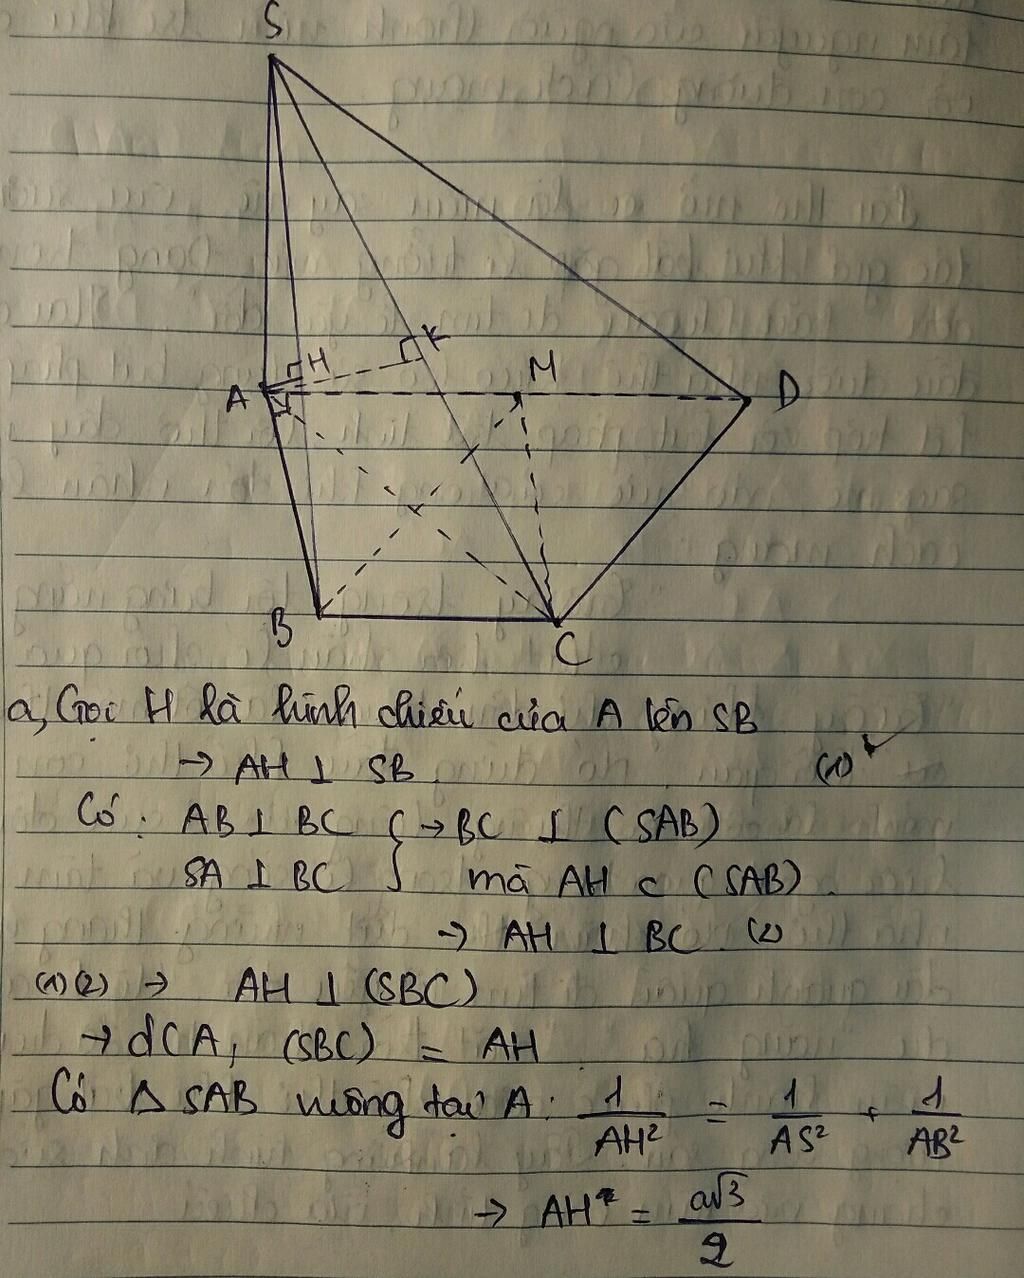 S
H
K
M
A
D
B
C
a, Gọi H là hình chiếu của A lên SB
→ AH ⊥ SB (1)
Có: AB ⊥ BC } → BC ⊥ (SAB)
SA ⊥ BC } mà AH ⊂ (SAB).
→ AH ⊥ BC (2)
(1)(2) → AH ⊥ (SBC)
→ d(A, (SBC) = AH
Có Δ SAB vuông tại A: 1/AH² = 1/AS² + 1/AB²
→ AH = a√3/2